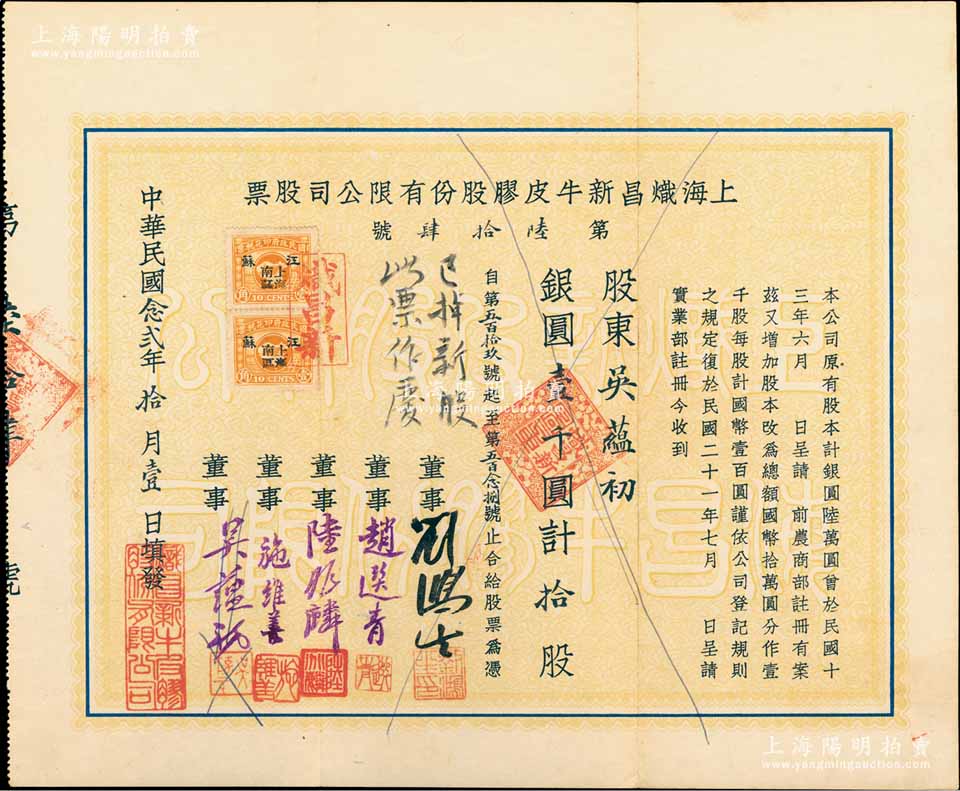 上海陽明拍賣
www.yangmingauction.com
上海熾昌新牛皮膠股份有限公司股票
第陸拾肆號
本公司原有股本計銀圓陸萬圓曾於民國十
三年六月 日呈請 前農商部註冊有案
茲又增加股本改爲總額國幣拾萬圓分作壹
千股每股計國幣壹百圓謹依公司登記規則
之規定復於民國二十一年七月 日呈請
實業部註冊今收到
股東吳蘊初
銀圓壹千圓計拾股
自第五百拾玖號起至第五百念捌號止合給股票爲憑
已掉新股
此票作廢
董事 劉鴻生
董事 趙選青
董事 陸
董事 施維善
董事 吳蘊初
中華民國念弍年拾月壹日填發
江蘇
上海南區
10 CENTS
江蘇
上海南區
10 CENTS
熾昌新
熾昌新牛皮膠
股份有限公司
上海陽明拍賣
www.yangmingauction.com
上海陽明拍賣
www.yangmingauction.com